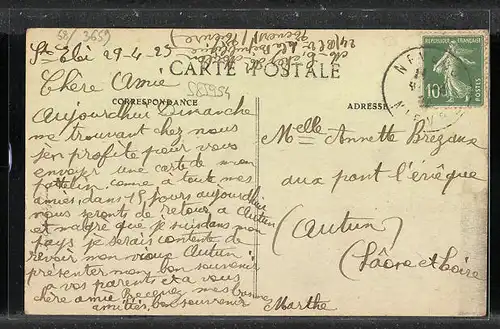 58/3659
St Eloi 29-4-25
CARTE POSTALE
Chère Amie
585954
CORRESPONDANCE
ADRESSE
Aujourdhui Dimanche
me trouvant chez nous
j'en profite pour vous
envoyer une carte de mon
comme à toute mes
amies, dans 15 jours aujourdhui
nous seronts de retour a Autun
et malgré que je suis dans mon
pays je serais contente de
revoir mon vieux Autun
presenter mon bon souvenir
a vos parents et a vous
chère amie Recevez mes bonne
amitiés, bon souvenir
Marthe
Melle Annette
aux pont l'évêque
(Autun)
(Saône et Loire
NE
10
POSTES